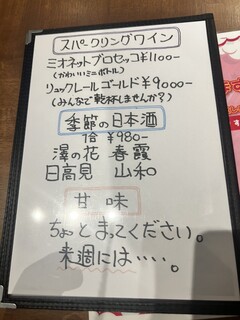 スパークリングワイン
ミオネットプロセッコ¥1100-
(かわいいミニボトル)
リュックレールゴールド¥9000-
(みんなで乾杯しませんか?)
季節の日本酒
1合 ¥980-
澤の花 春霞
日高見 山和
甘味
ちょっとまってください。
来週には・・・・。